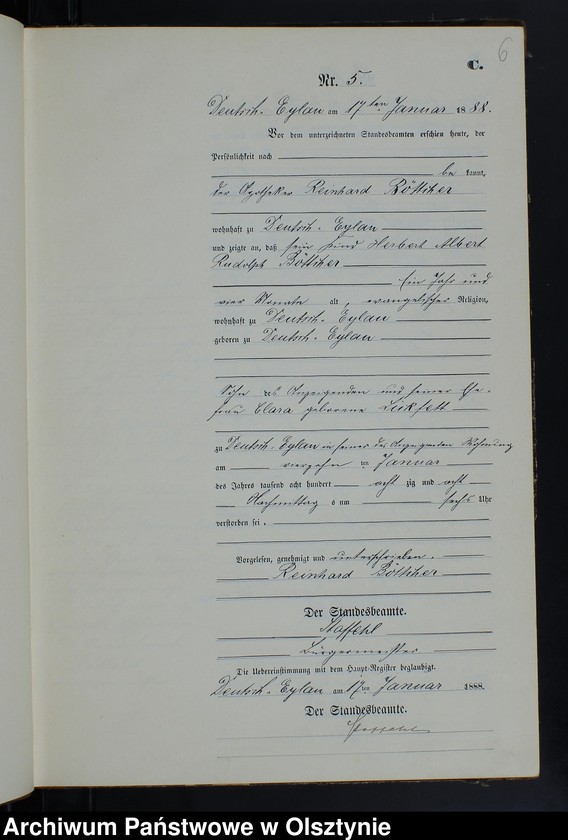 6
C.
Nr. 5.
Deutsch-Eylau am 17ten Januar 1888.
Vor dem unterzeichneten Standesbeamten erschien heute, der
Persönlichkeit nach
be kannt,
der Apotheker Reinhard Böttcher
wohnhaft zu Deutsch-Eylau
und zeigte an, daß sein Kind Herbert Albert
Rudolph Böttcher
Ein Jahr und
vier Monate alt, evangelischer Religion,
wohnhaft zu Deutsch-Eylau
geboren zu Deutsch-Eylau
Sohn des Anzeigenden und seiner Ehe-
frau Clara geborene Lickfett
zu Deutsch-Eylau in seiner des Anzeigenden Wohnung
am vierzehn ten Januar
des Jahres tausend acht hundert acht zig und acht
Nachmittag s um sechs Uhr
verstorben sei.
Vorgelesen, genehmigt und unterschrieben.
Reinhard Böttcher
Der Standesbeamte.
Staffehl
Bürgermeister
Die Uebereinstimmung mit dem Haupt-Register beglaubigt.
Deutsch-Eylau am 17ten Januar 1888.
Der Standesbeamte.
Staffehl
Archiwum Państwowe w Olsztynie